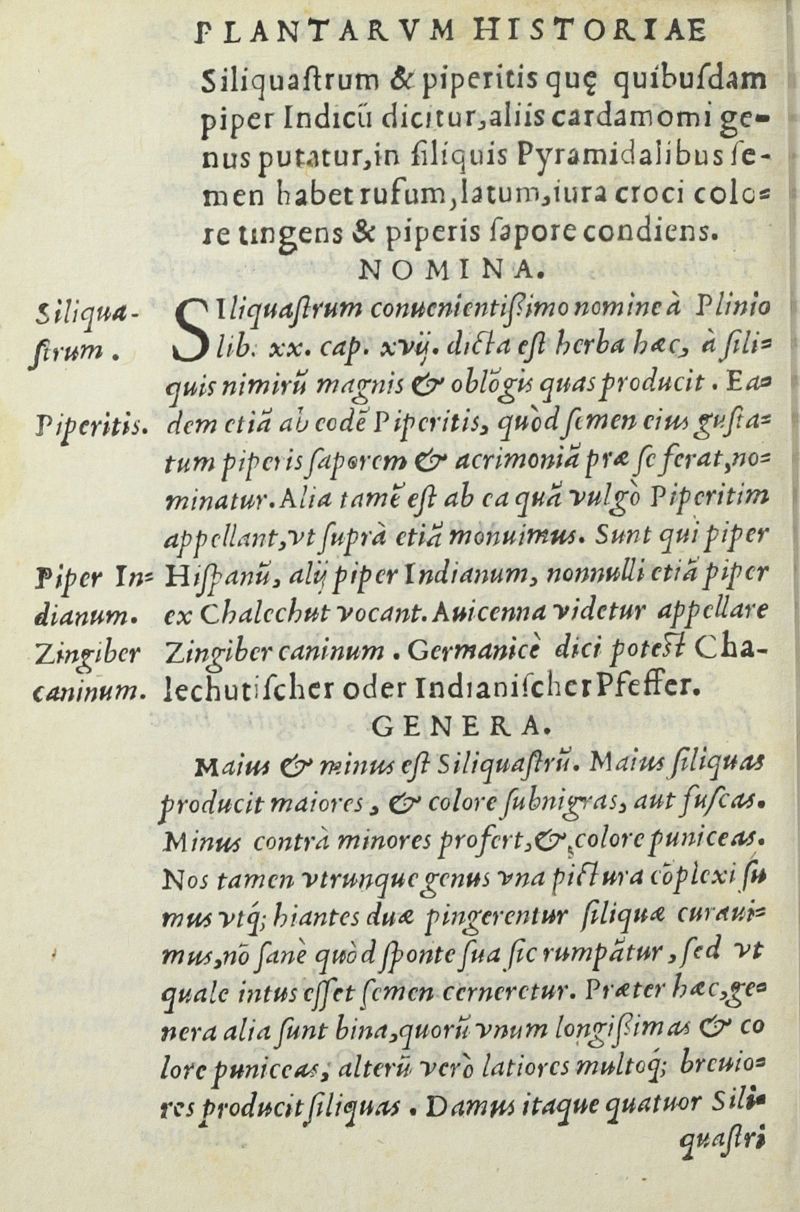 PLANTARVM HISTORIAE
Siliquaſtrum & piperitis quę quibuſdam
piper Indicū dicitur, aliis cardamomi ge-
nus putatur, in ſiliquis Pyramidalibus ſe-
men habet rufum, latum, iura croci colo-
re tingens & piperis ſapore condiens.
NOMINA.
Siliqua-
ſtrum.
SIliquaſtrum conuenientißimo nomine à Plinio
lib. xx. cap. xvij. dicta eſt herba hæc, à ſili-
quis nimirū magnis & oblōgis quas producit. Ea-
Piperitis.
dem etiā ab eodē Piperitis, quòd ſemen eius guſta-
tum piperis ſaporem & acrimoniā præ ſe ferat, no-
minatur. Alia tamē eſt ab ea quā vulgò Piperitim
appellant, vt ſuprà etiā monuimus. Sunt qui piper
Piper In-
dianum.
Hiſpanū, alij piper Indianum, nonnulli etiā piper
ex Chalechut vocant. Auicenna videtur appellare
Zingiber
caninum.
Zingiber caninum. Germanicè dici poteſt Cha-
lechutiſcher oder Indianiſcher Pfeffer.
GENERA.
Maius & minus eſt Siliquaſtrū. Maius ſiliquas
producit maiores, & colore ſubnigras, aut fuſcas.
Minus contrà minores profert, & colore puniceas.
Nos tamen vtrunque genus vna pictura cōplexi ſu
mus vtq; hiantes duæ pingerentur ſiliquæ curaui-
mus, nō ſanè quòd ſponte ſua ſic rumpātur, ſed vt
quale intus eſſet ſemen cerneretur. Præter hæc, ge-
nera alia ſunt bina, quorū vnum longißimas & co
lore puniceas, alterū verò latiores multoq; breuio-
res producit ſiliquas. Damus itaque quatuor Sili-
quaſtri